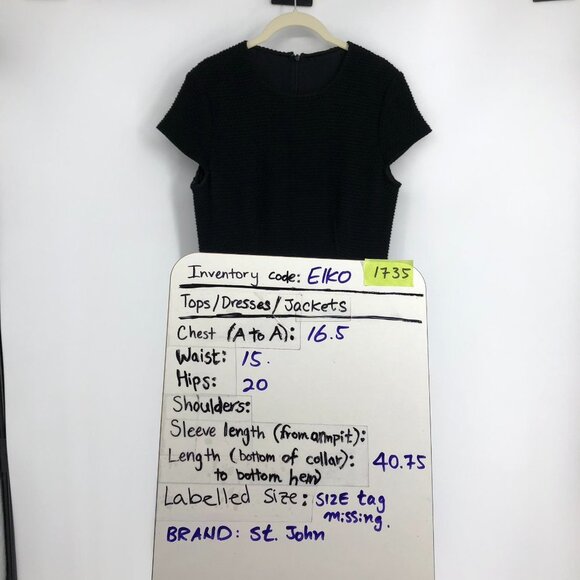 Inventory code: EIKO 1735
Tops/Dresses/Jackets
Chest (A to A): 16.5
Waist: 15.
Hips: 20
Shoulders:
Sleeve length (from armpit):
Length (bottom of collar): 40.75
to bottom hem)
Labelled Size: SIZE tag
missing.
BRAND: St. John